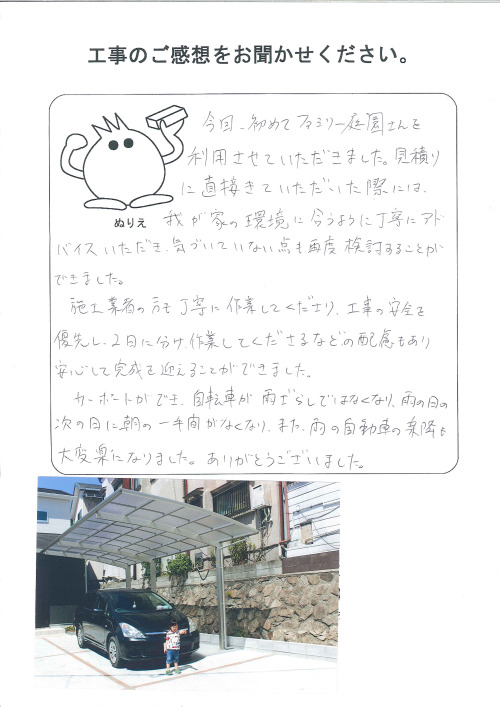 工事のご感想をお聞かせください。
ぬりえ
今回、初めてファミリー庭園さんを
利用させていただきました。見積り
に直接きていただいた際には、
我が家の環境に合うように丁寧にアド
バイスいただき、気づいていない点も再度検討することが
できました。
施工業者の方も丁寧に作業してくださり、工事の安全を
優先し、2日に分け作業してくださるなどの配慮もあり
安心して完成を迎えることができました。
カーポートができ、自転車が雨ざらしではなくなり、雨の日の
次の日に朝の一手間がなくなり、また、雨の自動車の乗降も
大変楽になりました。ありがとうございました。